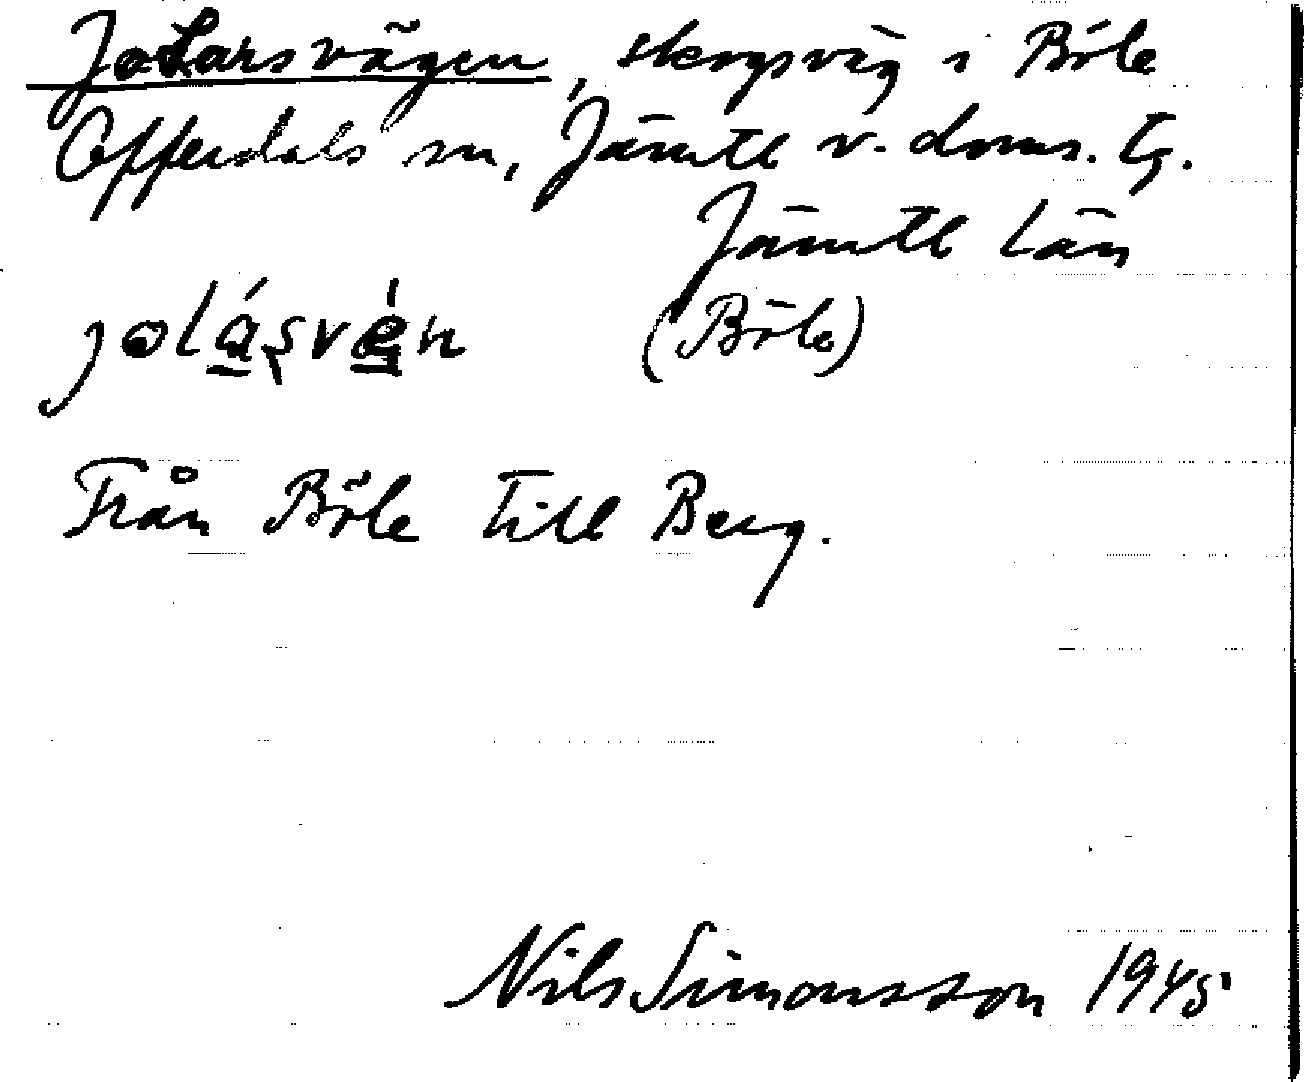 JoLarsvägen, skogsväg i Böle
Offerdals sn, Jämtl v. doms. tg.
Jämtl Län
jolásvén (Böle)
Från Böle till Berg.
Nils Simonsson 1945